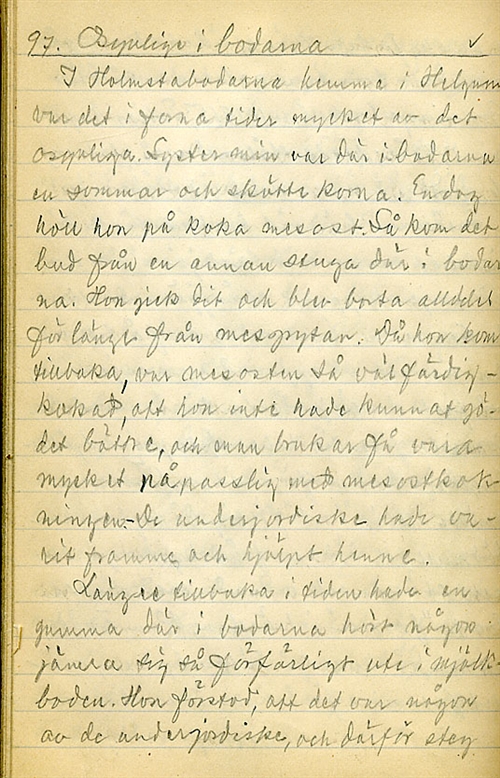 97. Osynlige i bodarna ✓
I Holmstabodarna hemma i Helgum
var det i forna tider mycket av det
osynliga. Syster min var där i bodarna
en sommar och skötte korna. En dag
höll hon på koka mesost. Så kom det
bud från en annan stuga där i bodar
na. Hon gick dit och blev borta alldel
för länge från mesgrytan. Då hon kom
tillbaka, var mesosten så väl färdig-
kokat, att hon inte hade kunnat gö-
det bättre, och man brukar få vara
mycket påpasslig med mesostkok-
ningen. De underjordiske hade va-
rit framme och hjälpt henne.
Längre tillbaka i tiden hade en
gumma där i bodarna hört någon
jämra sig så förfärligt ute i mjölk-
boden. Hon förstod, att det var någon
av de underjordiske, och därför steg